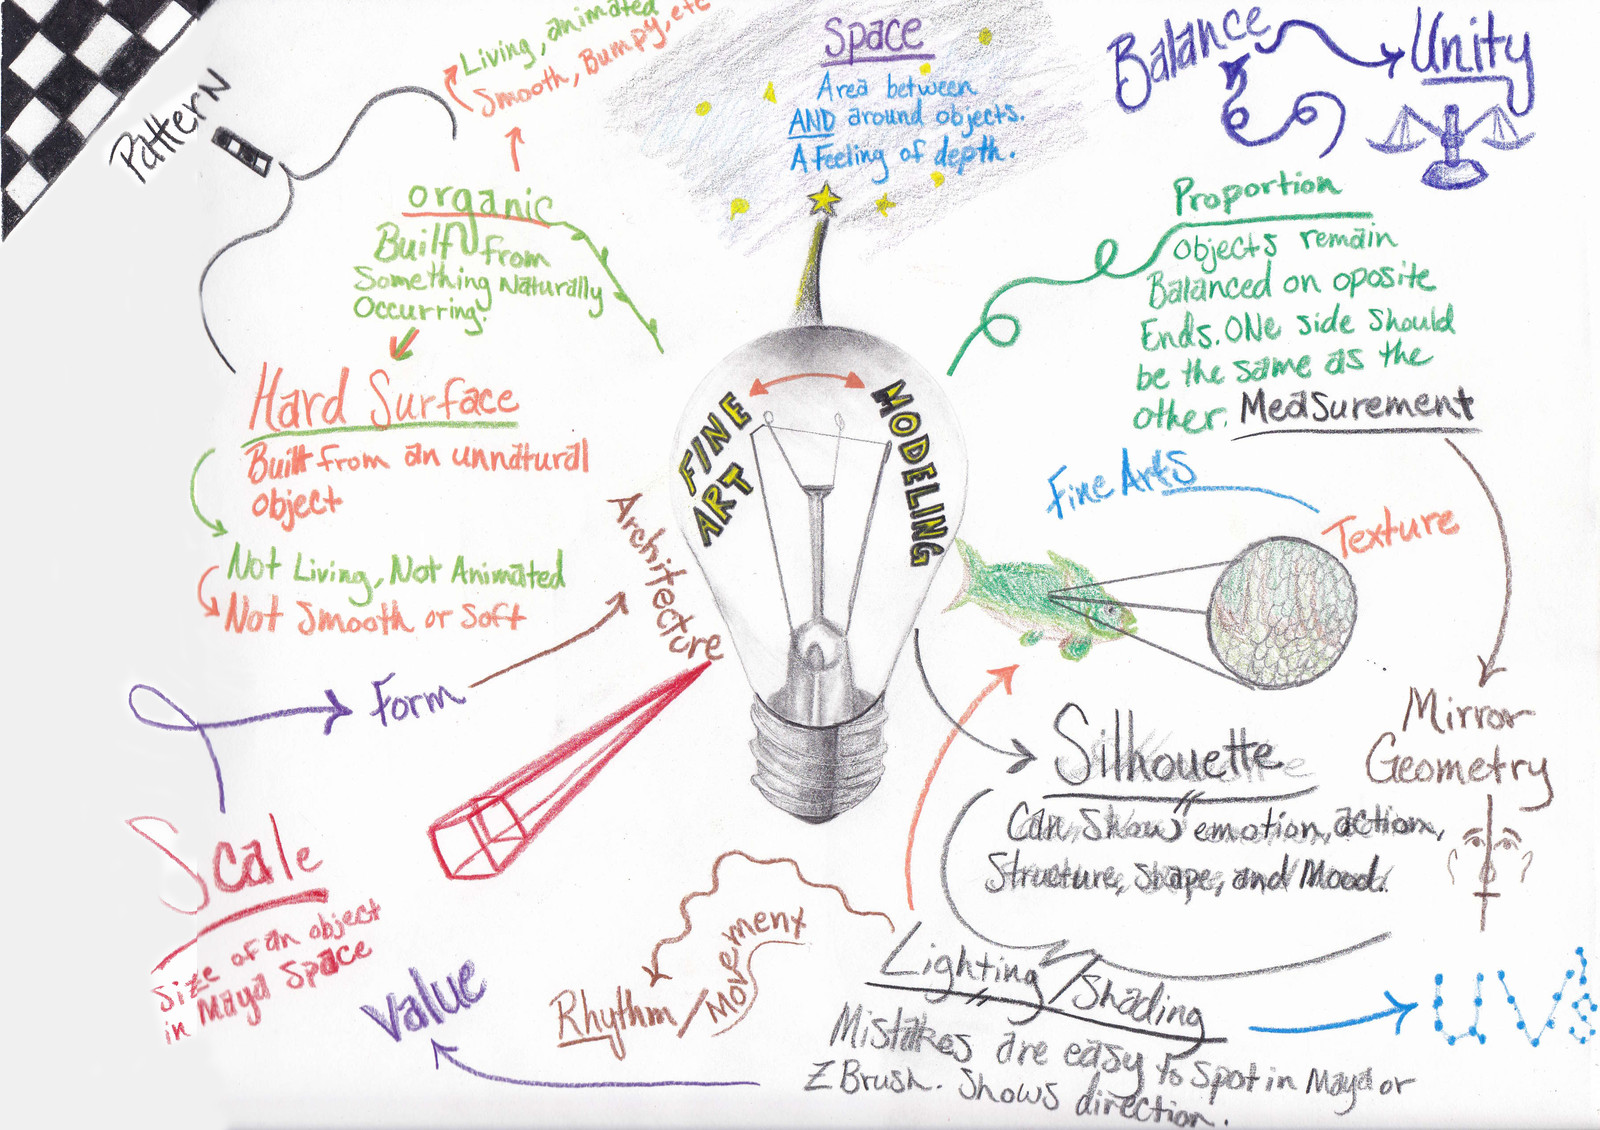 Pattern
Living, animated
Smooth, Bumpy, etc
Space
Area between
AND around objects.
A Feeling of depth.
Balance
Unity
organic
Built from
Something Naturally
Occurring.
Hard Surface
Built from an unnatural
object
Not Living, Not Animated
Not Smooth or Soft
Proportion
Objects remain
Balanced on oposite
Ends. ONe side should
be the same as the
other. Measurement
FINE
ART
MODELING
Architecture
Fine Arts
Texture
Form
Silhouette
Can show emotion, action,
Structure, shape, and Mood.
Mirror
Geometry
Scale
Size of an object
in Maya Space
Value
Rhythm/Movement
Lighting/Shading
Mistakes are easy to spot in Maya or
ZBrush. Shows direction.
UVs